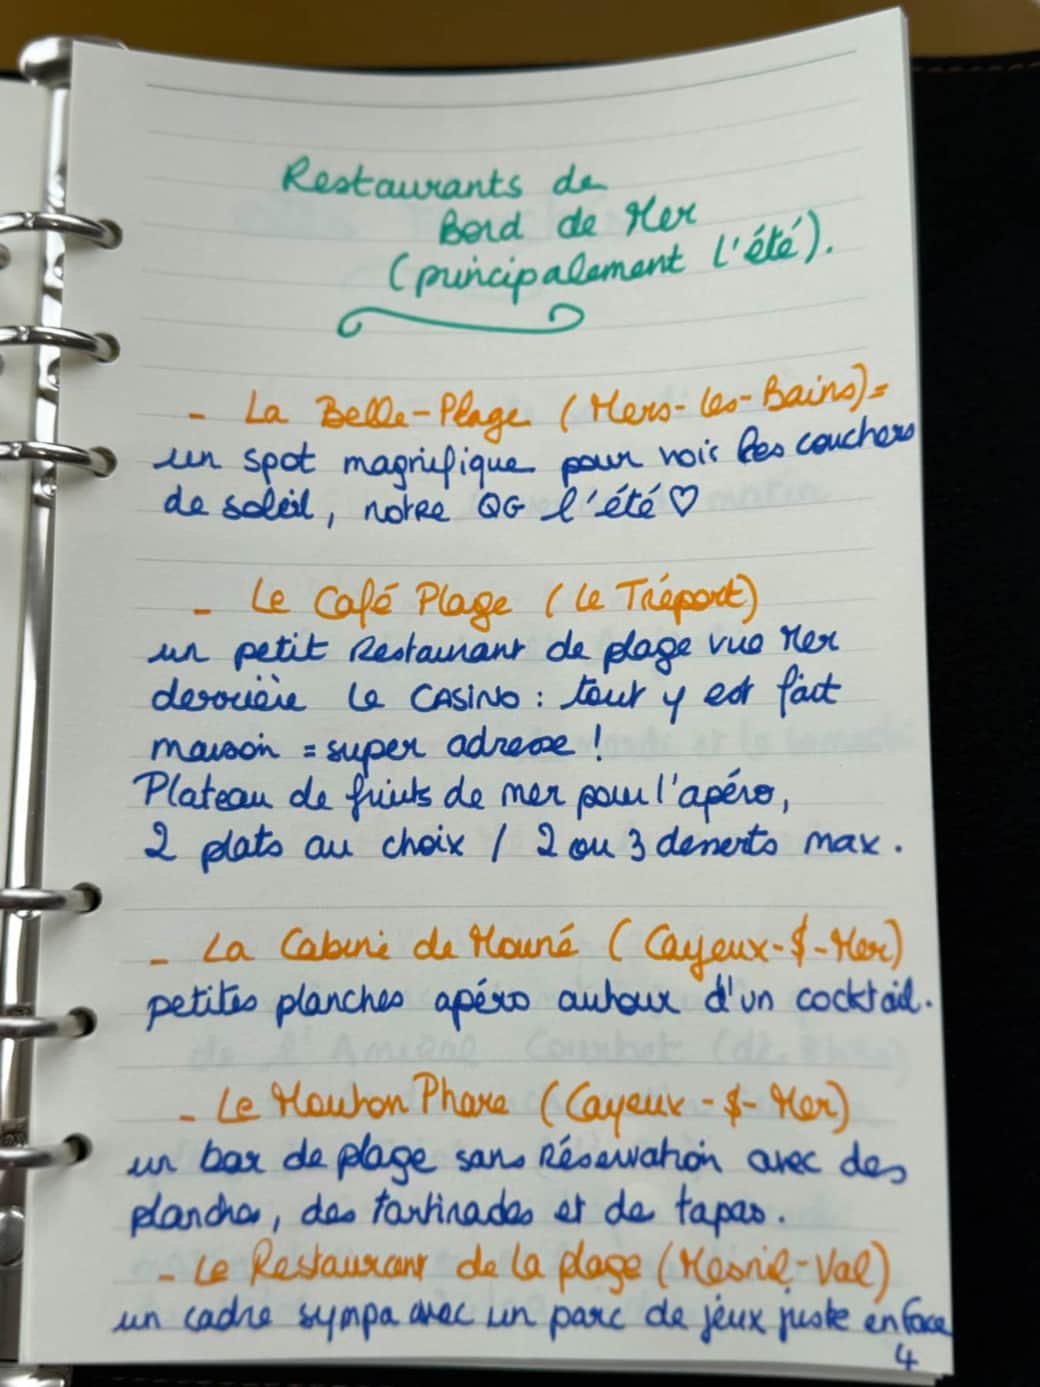 Restaurants de
Bord de Mer
(principalement l'été).
- La Belle-Plage (Mers-les-Bains)=
un spot magnifique pour voir les couchers
de soleil, notre QG l'été ♡
- Le Café Plage (Le Tréport)
un petit Restaurant de plage vue Mer
derrière le CASINO : tout y est fait
maison = super adresse !
Plateau de fruits de mer pour l'apéro,
2 plats au choix / 2 ou 3 desserts max.
- La Cabine de Mouné (Cayeux-S-Mer)
petites planches apéro autour d'un cocktail.
- Le Mouton Phare (Cayeux-S-Mer)
un bar de plage sans Réservation avec des
planches, des tartinades et de tapas.
- Le Restaurant de la plage (Mesnil-Val)
un cadre sympa avec un parc de jeux juste en face
4